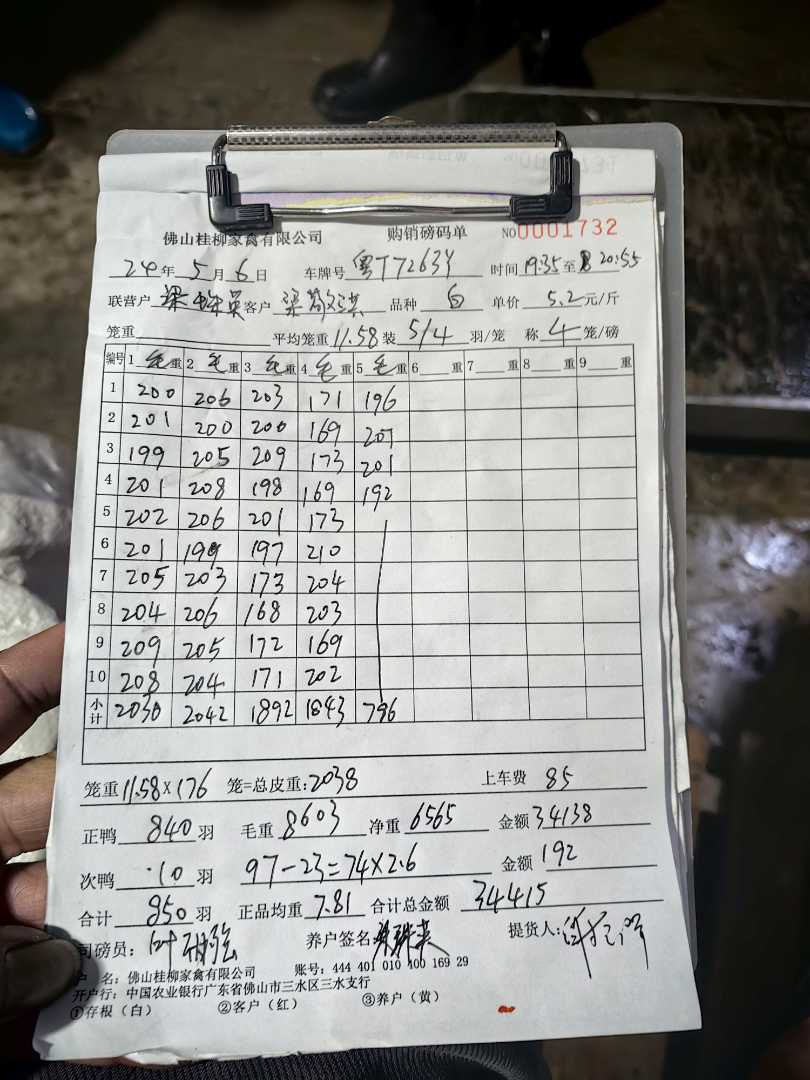 佛山桂柳家禽有限公司 购销磅码单 NO0001732
24年5月6日 车牌号 粤T7263Y 时间 19:35至 20:55
联营户 梁 英 客户 梁 品种 白 单价 5.2元/斤
笼重 平均笼重11.58装5/4羽/笼 称4笼/磅
编号 1毛重 2毛重 3毛重 4毛重 5毛重 6重 7重 8重 9重
1 200 206 203 171 196
2 201 200 200 169 207
3 199 205 209 173 201
4 201 208 198 169 192
5 202 206 201 173
6 201 199 197 210
7 205 203 173 204
8 204 206 168 203
9 209 205 172 169
10 208 204 171 202
小计 2030 2042 1892 1843 796
笼重11.58×176 笼=总皮重:2038 上车费 85
正鸭 840羽 毛重 8603 净重 6565 金额34138
次鸭 10羽 97-23=74×2.6 金额192
合计 850羽 正品均重7.81 合计总金额 34415
司磅员: 叶 强 养户签名 英 提货人:
户 名:佛山桂柳家禽有限公司 账号:444 401 010 400 169 29
开户行:中国农业银行广东省佛山市三水区三水支行
①存根(白) ②客户(红) ③养户(黄)